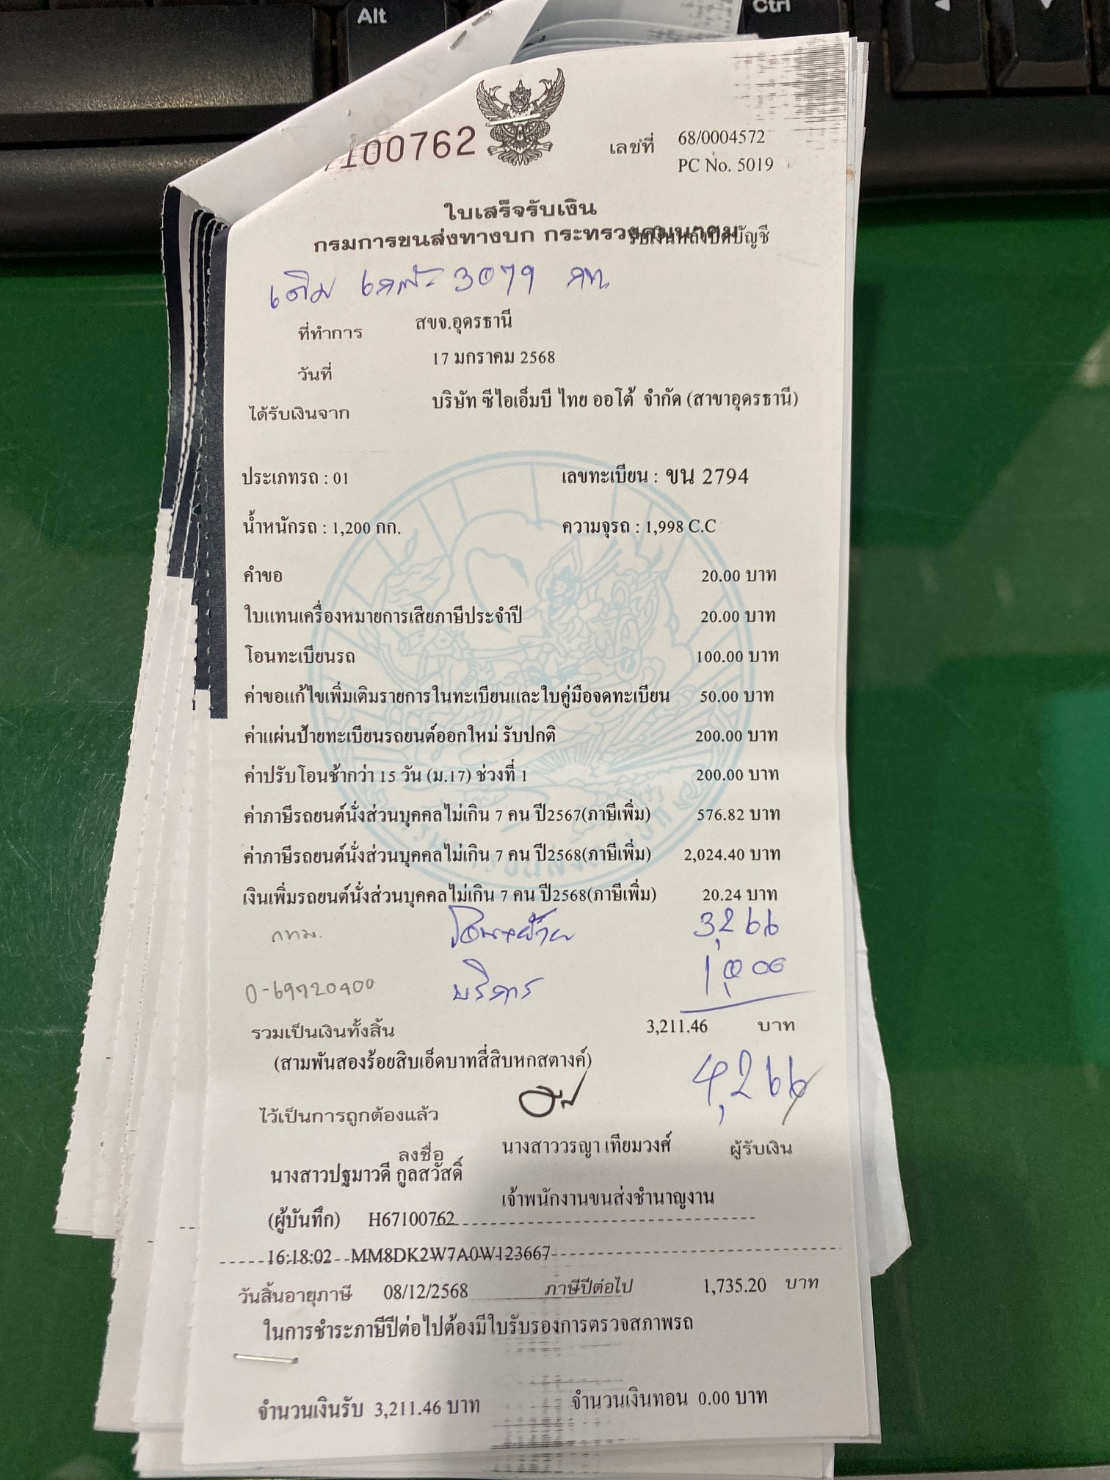 Alt
Ctrl
100762
เลขที่ 68/0004572
PC No. 5019
ใบเสร็จรับเงิน
กรมการขนส่งทางบก กระทรวงคมนาคม
รับเงินหลังปิดบัญชี
เดิม 3079 กท
ที่ทำการ สขจ.อุดรธานี
วันที่ 17 มกราคม 2568
ได้รับเงินจาก บริษัท ซีไอเอ็มบี ไทย ออโต้ จำกัด (สาขาอุดรธานี)
ประเภทรถ : 01 เลขทะเบียน : ขน 2794
น้ำหนักรถ : 1,200 กก. ความจุรถ : 1,998 C.C
คำขอ 20.00 บาท
ใบแทนเครื่องหมายการเสียภาษีประจำปี 20.00 บาท
โอนทะเบียนรถ 100.00 บาท
ค่าขอแก้ไขเพิ่มเติมรายการในทะเบียนและใบคู่มือจดทะเบียน 50.00 บาท
ค่าแผ่นป้ายทะเบียนรถยนต์ออกใหม่ รับปกติ 200.00 บาท
ค่าปรับโอนช้ากว่า 15 วัน (ม.17) ช่วงที่ 1 200.00 บาท
ค่าภาษีรถยนต์นั่งส่วนบุคคลไม่เกิน 7 คน ปี2567(ภาษีเพิ่ม) 576.82 บาท
ค่าภาษีรถยนต์นั่งส่วนบุคคลไม่เกิน 7 คน ปี2568(ภาษีเพิ่ม) 2,024.40 บาท
เงินเพิ่มรถยนต์นั่งส่วนบุคคลไม่เกิน 7 คน ปี2568(ภาษีเพิ่ม) 20.24 บาท
กทม. โอน+ย้าย 3,266
บริการ 1,000
รวมเป็นเงินทั้งสิ้น 3,211.46 บาท
(สามพันสองร้อยสิบเอ็ดบาทสี่สิบหกสตางค์)
4,266
ไว้เป็นการถูกต้องแล้ว
ลงชื่อ นางสาววรญา เทียมวงศ์ ผู้รับเงิน
นางสาวปฐมาวดี กูลสวัสดิ์
เจ้าพนักงานขนส่งชำนาญงาน
(ผู้บันทึก) H67100762
16:18:02 MM8DK2W7A0W123667
วันสิ้นอายุภาษี 08/12/2568 ภาษีปีต่อไป 1,735.20 บาท
ในการชำระภาษีปีต่อไปต้องมีใบรับรองการตรวจสภาพรถ
จำนวนเงินรับ 3,211.46 บาท จำนวนเงินทอน 0.00 บาท